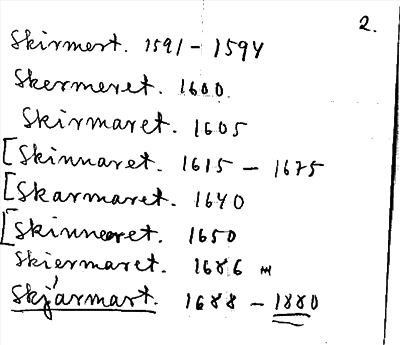 2.
Skirmert. 1591 - 1594
Skermeret. 1600.
Skirmaret. 1605
[Skinnaret. 1615 - 1675
[Skarmaret. 1640
[Skinneret. 1650
Skiermaret. 1686
Skjärmart. 1688 - 1880